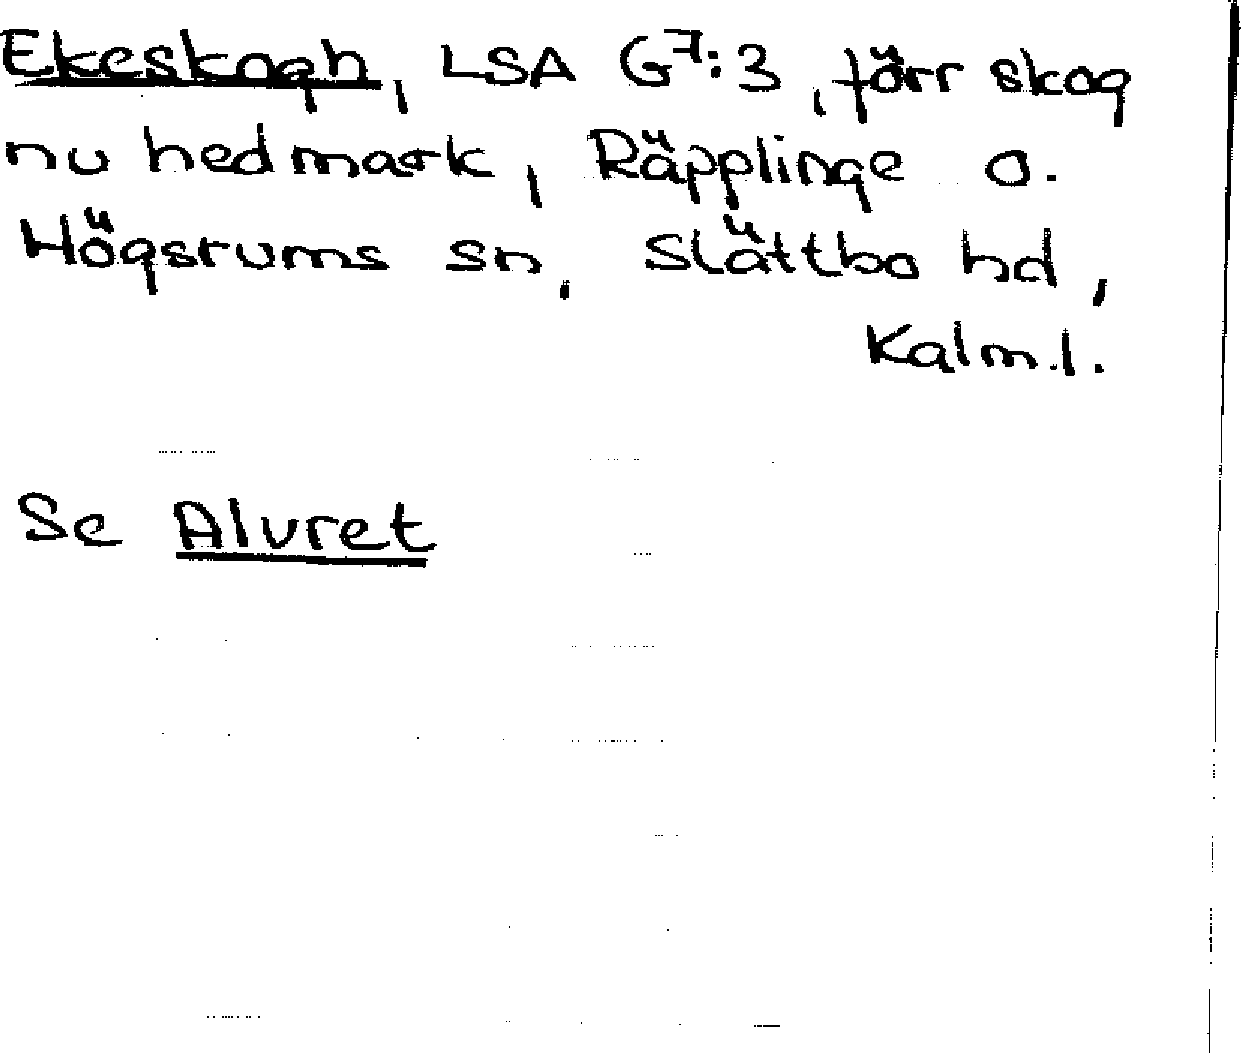 Ekeskogh, LSA G7:3, förr skog
nu hedmark, Räpplinge o.
Högsrums sn, Slättbo hd,
Kalm.l.
Se Alvret